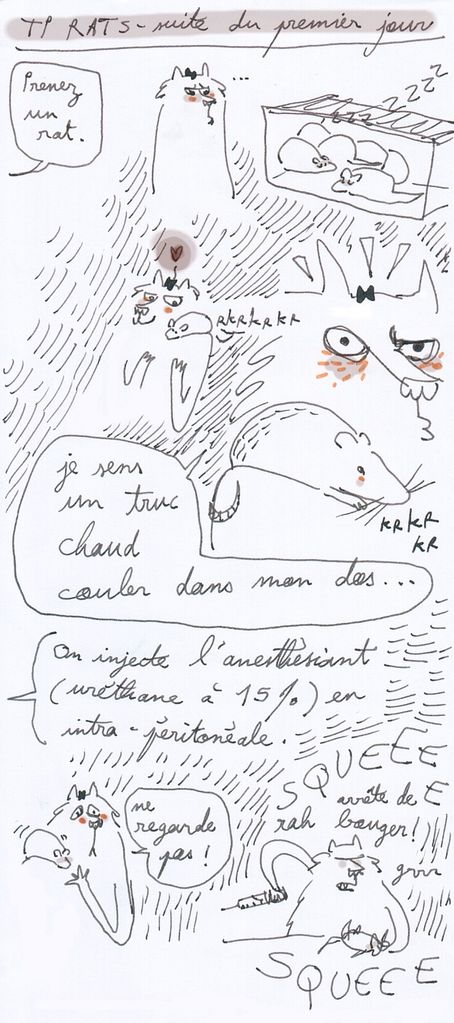 TP RATS - suite du premier jour
Prenez
un
rat.
...
zzzzzzz
KRKRKRKR
je sens
un truc
chaud
couler dans mon dos...
KRKR
KR
On injecte l'anesthésiant
(uréthane à 15%) en
intra-péritonéale.
ne
regarde
pas !
SQUEEEE
rah arrête de
bouger!
grrr
SQUEEE